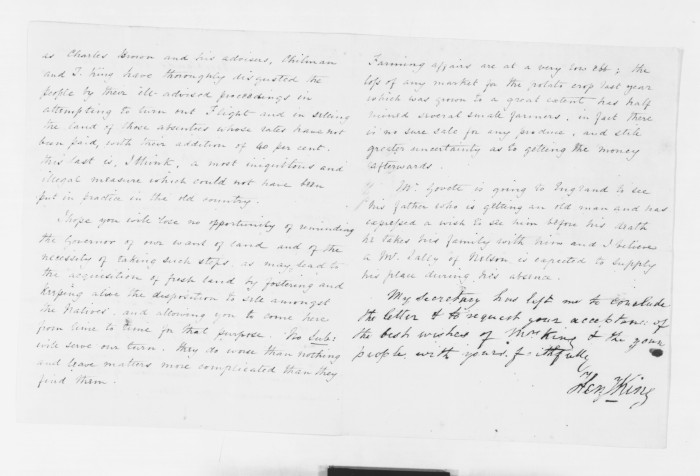 as Charles Brown and his advisers, Chilman
and T. King have thoroughly disgusted the
people by their ill-advised proceedings in
attempting to turn out Flight and in selling
the land of those absentees whose rates have not
been paid, with their addition of 40 per cent.
This last is, I think, a most iniquitous and
illegal measure which could not have been
put in practice in the old country.
I hope you will lose no opportunity of reminding
the Governor of our want of land and of the
necessity of taking such steps, as may lead to
the acquisition of fresh land by fostering and
keeping alive the disposition to sell amongst
the Natives, and allowing you to come here
from time to time for that purpose. No Subs:
will serve our turn. they do worse than nothing
and leave matters more complicated than they
find them.
Farming affairs are at a very low ebb; the
loss of any market for the potato crop last year
which was grown to a great extent, has half
ruined several small farmers, in fact there
is no sure sale for any produce, and still
greater uncertainty as to getting the money
afterwards.
Mr. Govett is going to England to see
his father who is getting an old man and has
expressed a wish to see him before his death
he takes his family with him and I believe
a Mr. of Nelson is expected to supply
his place during his absence.
My secretary has left me to conclude
the letter & to request your acceptance of
the best wishes of Mrs King & the your
people, with yours. faithfully
Heny King